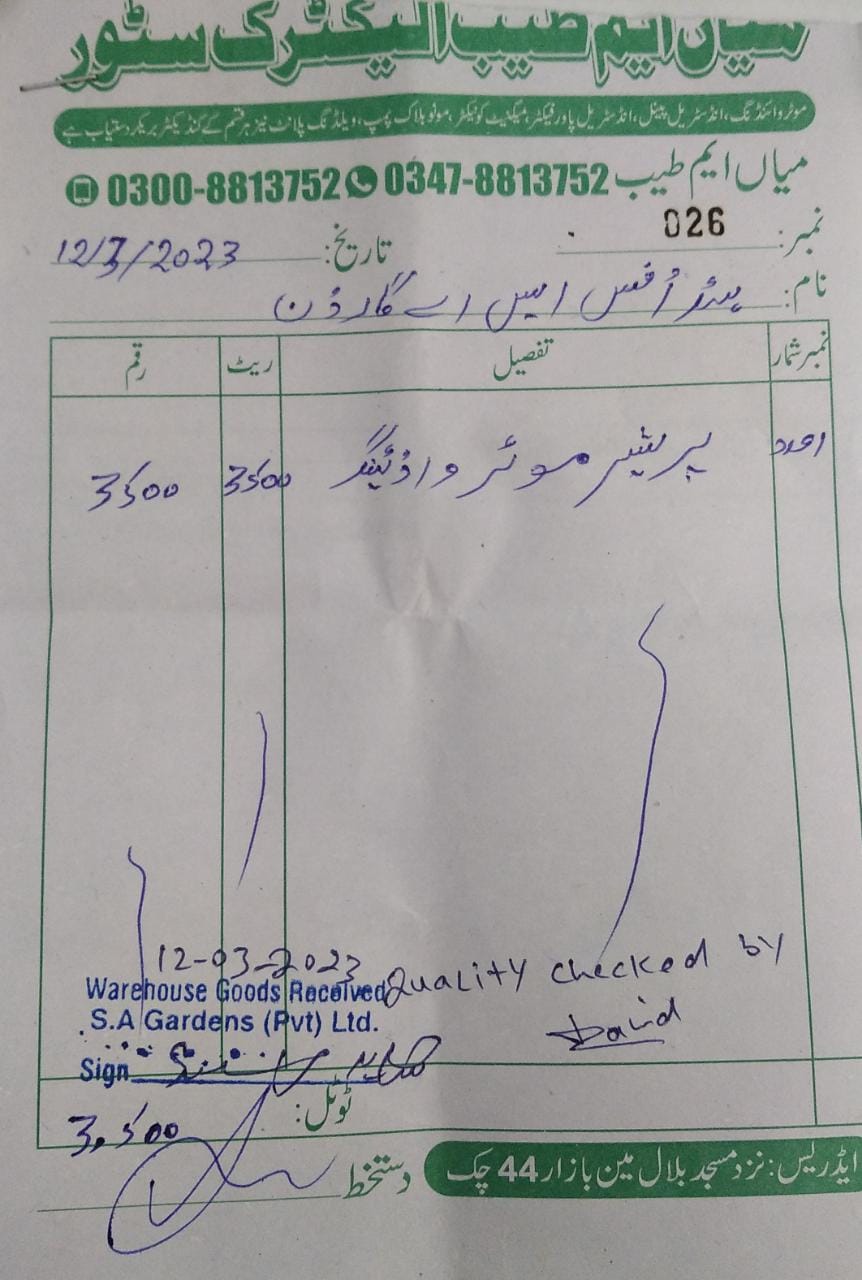 میاں ایم طیب الیکٹرک سٹور
موٹر وائنڈنگ، انڈسٹریل پینل، انڈسٹریل پاور فیکٹر، میگنیٹ کونیکٹر، مونو بلاک پمپ، ویلڈنگ پلانٹ نیز ہر قسم کے کنڈیکٹر بریکر دستیاب ہے
میاں ایم طیب 0347-8813752 0300-8813752
نمبر: 026 تاریخ: 12/3/2023
نام: ہیڈ آفس ایس اے گارڈن
نمبر شمار تفصیل ریٹ رقم
1عدد پریشر موٹر وائڈینگ 3500 3500
12-03-2023
Warehouse Goods Received
S.A Gardens (Pvt) Ltd.
Sign
Quality checked by
ٹوٹل: 3,500
دستخط
ایڈریس: نزد مسجد بلال مین بازار 44 چک